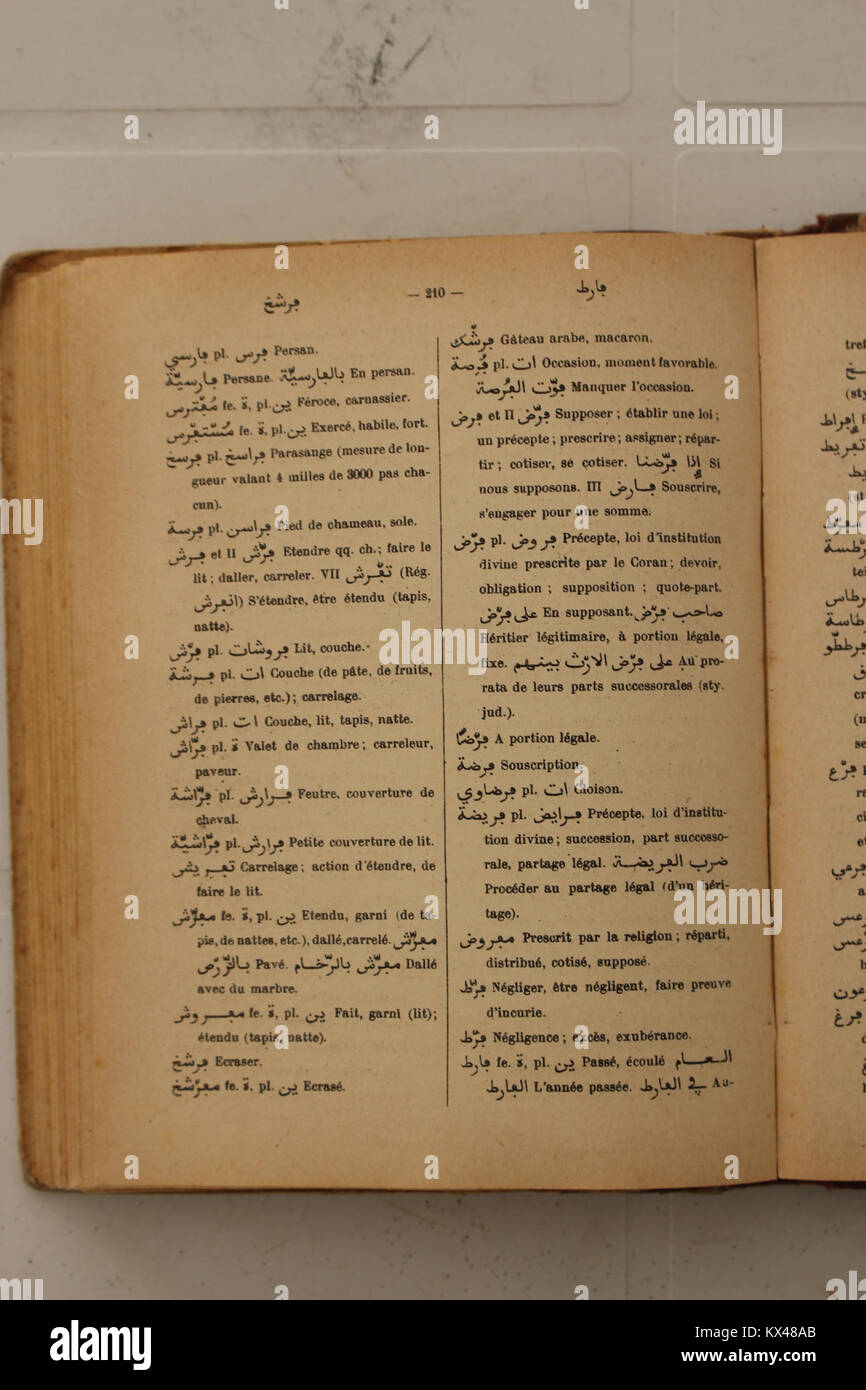 ڢرشخ — 210 — ڢارط
ڢارسي pl. ڢرس Persan.
ڢارسيّة Persane. بالڢارسيّة En persan.
مُڢْترس fe. ة, pl. ين Féroce, carnassier.
مُسْتڢْرس fe. ة, pl. ين Exercé, habile, fort.
ڢرسخ pl. ڢراسخ Parasange (mesure de lon-
gueur valant 4 milles de 3000 pas cha-
cun).
ڢرسة pl. ڢراسن Pied de chameau, sole.
ڢرش et II ڢرّش Etendre qq. ch.; faire le
lit; daller, carreler. VII تڢرّش (Rég.
انڢرش) S'étendre, être étendu (tapis,
natte).
ڢرْش pl. ڢروشات Lit, couche.
ڢرشة pl. ات Couche (de pâte, de fruits,
de pierres, etc.); carrelage.
ڢراش pl. ات Couche, lit, tapis, natte.
ڢرّاش pl. ة Valet de chambre; carreleur,
paveur.
ڢرّاشة pl. ڢرارش Feutre, couverture de
cheval.
ڢرّاشيّة pl. ڢرارش Petite couverture de lit.
تڢريش Carrelage; action d'étendre, de
faire le lit.
مڢرّش fe. ة, pl. ين Etendu, garni (de ta-
pis, de nattes, etc.), dallé, carrelé. مڢرّش
بالرّص Pavé. مڢرّش بالرّخام Dallé
avec du marbre.
مڢروش fe. ة, pl. ين Fait, garni (lit);
étendu (tapis, natte).
ڢرشخ Ecraser.
مڢرْشخ fe. ة, pl. ين Ecrasé.
ڢرشّك Gâteau arabe, macaron.
ڢُرصة pl. ات Occasion, moment favorable.
ڢوّت الڢُرصة Manquer l'occasion.
ڢرض et II ڢرّض Supposer; établir une loi;
un précepte; prescrire; assigner; répar-
tir; cotiser, se cotiser. إذا ڢرّضنا Si
nous supposons. III ڢارض Souscrire,
s'engager pour une somme.
ڢرْض pl. ڢروض Précepte, loi d'institution
divine prescrite par le Coran; devoir,
obligation; supposition; quote-part.
على ڢرْض En supposant. صاحب ڢرْض
Héritier légitimaire, à portion légale,
fixe. على ڢرْض الارْث بينهم Au pro-
rata de leurs parts successorales (sty.
jud.).
ڢرْضًا A portion légale.
ڢرضة Souscription.
ڢرضاوي pl. ات Cloison.
ڢريضة pl. ڢرايض Précepte, loi d'institu-
tion divine; succession, part successo-
rale, partage légal. ضرب الڢريضة
Procéder au partage légal (d'un héri-
tage).
مڢروض Prescrit par la religion; réparti,
distribué, cotisé, supposé.
ڢرّط Négliger, être négligent, faire preuve
d'incurie.
ڢرْط Négligence; excès, exubérance.
ڢارط fe. ة, pl. ين Passé, écoulé العام
الڢارط L'année passée. في الڢارط Au-
tref
(sty
إڢراط
تڢريط
ڢرّع
ڢرعي
ڢرعون
ڢرغ
alamy
a
Image ID: KX48AB
www.alamy.com